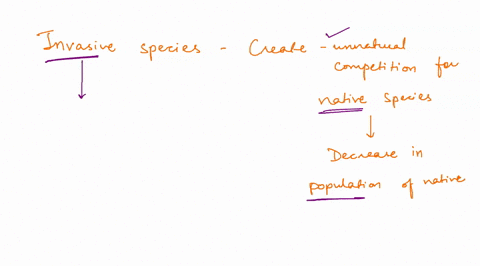 Invasive species - Create - unnatural
competition for
native species
Decrease in
population of native